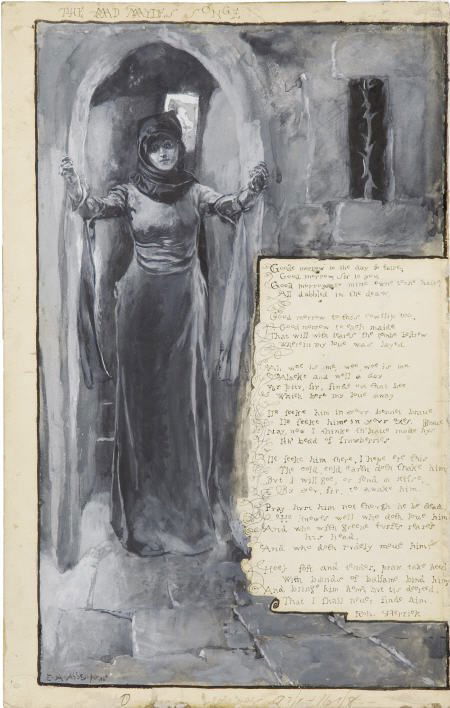 THE MAD MAYDES SONGE
Goode morrow to the day so faire,
Good morrow, sir to you,
Good morrow to mine owne torne haire
All dabbled in the deaw.
Good morrow to this cowslip too,
Good morrow to each maide
That will with teares the tombe bestrew
Wherein my loue was layed
Ah woe is me, woe woe is me
Alacke and well a day
For pity, sir, finde out that bee
Which bore my loue away
Ile seeke him in your bonnet braue
Ile seeke him in your eyes,
Nay, now I thinke th'haue made his
bead of strawberries
Ile seeke him there, I hope ere this
The cold, cold earth doth shake him,
But I will goe, or send a kisse
By you, sir, to awake him
Pray hurt him not though he be dead
knowes well who doth loue him
And who with greene turfes reares
his head,
And who doth rudely moue him
soft and tender, pray take heed
With bands of him
And bring him home, but tis decreed,
That I shall never finde him
Herrick